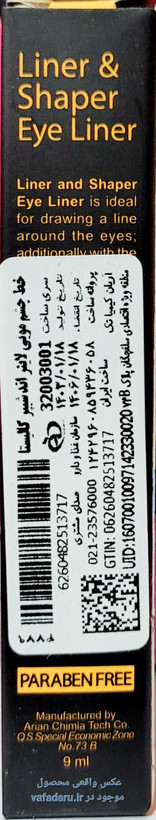 Liner &
Shaper
Eye Liner
Liner and Shaper
Eye Liner is ideal
for drawing a line
around the eyes;
additionally with the
خط چشم مویی لاینر اند شیپر کالیستا
سری ساخت 32003001
تاریخ تولید ۱۴۰۳/۰۱/۱۸
تاریخ انقضاء ۱۴۰۶/۰۱/۱۸
پروانه ساخت
سازمان غذا و دارو
صدای مشتری
021-23576000
6260482513717
GTIN: 06260482513717
آرایان کیمیا تک
ساخت ایران
منطقه ویژه اقتصادی سلفچگان
PARABEN FREE
Manufactured by
Arian Chimia Tech Co.
QS Special Economic Zone
No.73 B
9 ml
عکس واقعی محصول
موجود در vafadaru.ir